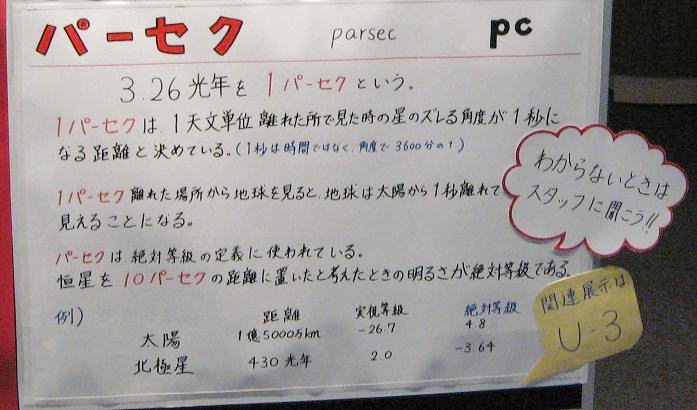 パーセク parsec pc
3.26光年を 1パーセク という。
1パーセクは、1天文単位 離れた所で見た時の星のズレる角度が1秒に
なる距離と決めている。(1秒は時間ではなく、角度で3600分の1)
1パーセク離れた場所から地球を見ると、地球は太陽から1秒離れて
見えることになる。
パーセクは絶対等級の定義に使われている。
恒星を10パーセクの距離に置いたと考えたときの明るさが絶対等級である。
例) 距離 実視等級 絶対等級
太陽 1億5000万km -26.7 4.8
北極星 430光年 2.0 -3.64
わからないときは
スタッフに聞こう!!
関連展示は
U-3